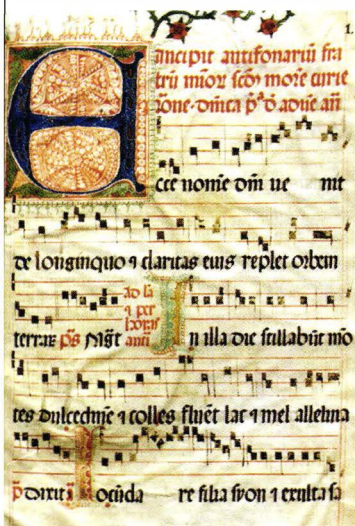 1.
ancipit antifonariū fra
trū mīoꝝ scđꝫ morē curie
ione · dnīca pͣ ď adūe añ
Ecce nomē dm̄ ue nit
de longinquo ⁊ claritas eius replet orbem
terraꝝ pš Mgt̄
ad la ⁊ per horas anti
In illa die stillabūt mō
tes dulcedinē ⁊ colles fluēt lac ⁊ mel alleluia
p̄ dixit ī Iocūda re filia syon ⁊ exulta sa